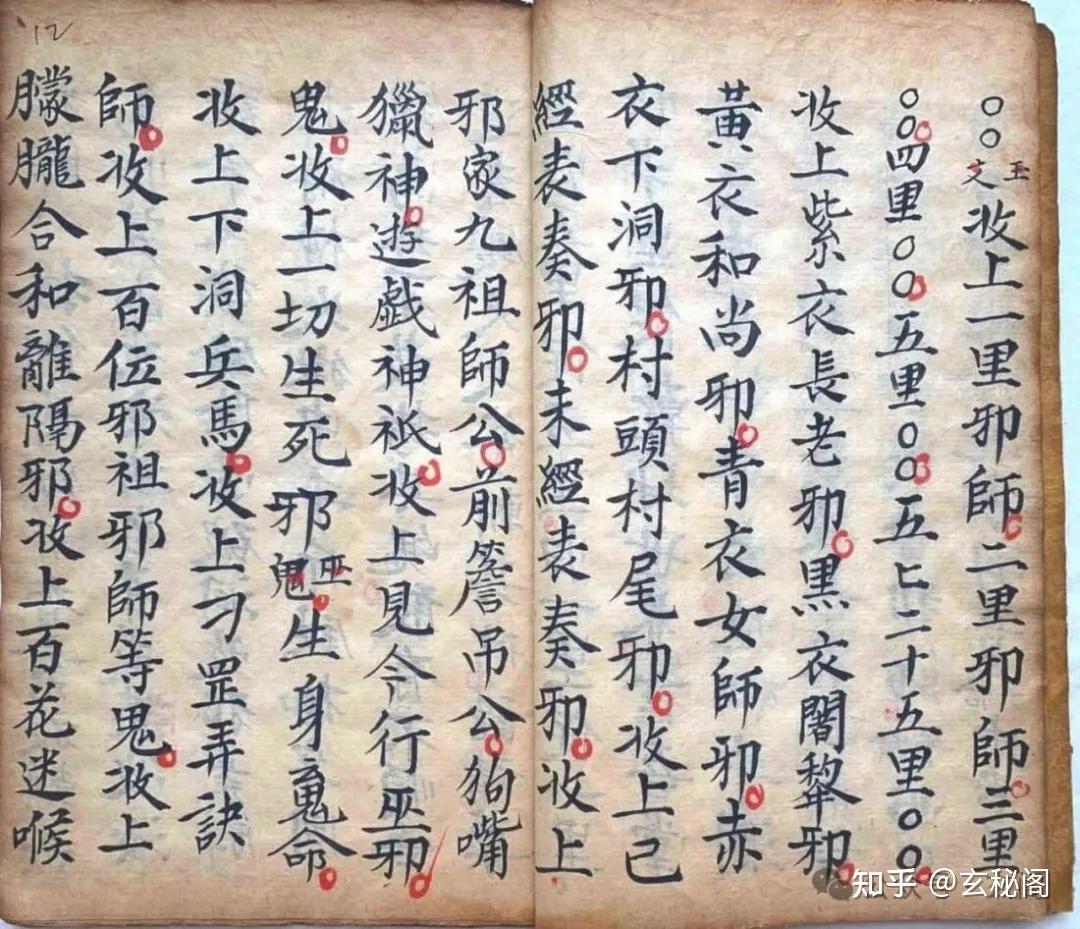 ○○玉文收上一里邪師二里邪師三里
○○四里○○五里○○五匕二十五里○○
收上紫衣長老邪黑衣闍犂邪
黃衣和尚邪青衣女師邪赤
衣下洞邪村頭村尾邪收上已
經表奏邪未經表奏邪收上
邪家九祖師公前簷吊公狗嘴
獵神遊戲神祇收上見今行巫邪
鬼收上一切生死邪巫鬼生身䰟命
收上下洞兵馬收上刁罡弄訣
師收上百位邪祖邪師等鬼收上
朦朧合和離隔邪收上百花迷喉
12
知乎 @玄秘阁